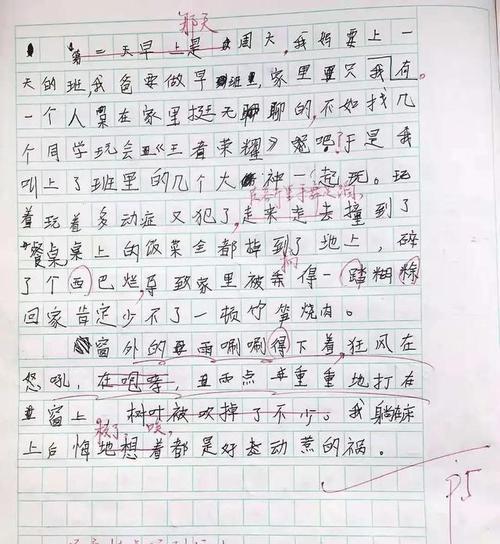 那天
第二天早上是周六,我妈要上一
天的班,我爸要做早班,家里只我有
一个人呆在家里挺无聊的,不如找几
个同学玩会《王者荣耀》吧!于是我
叫上了班里的几个大神一起玩。玩
着玩着多动症又犯了,走来走去撞到了
餐桌桌上的饭菜全都掉到了地上,碎
了个西巴烂,导致家里被我得一踏糊
回家肯定少不了一顿竹笋烧肉。
窗外的雨唰唰得下着,狂风在
怒吼,在咆哮,雨点重重地打在
窗上 树叶被吹掉了不少。我躺床
上后悔地想着都是好动惹的祸。
P5